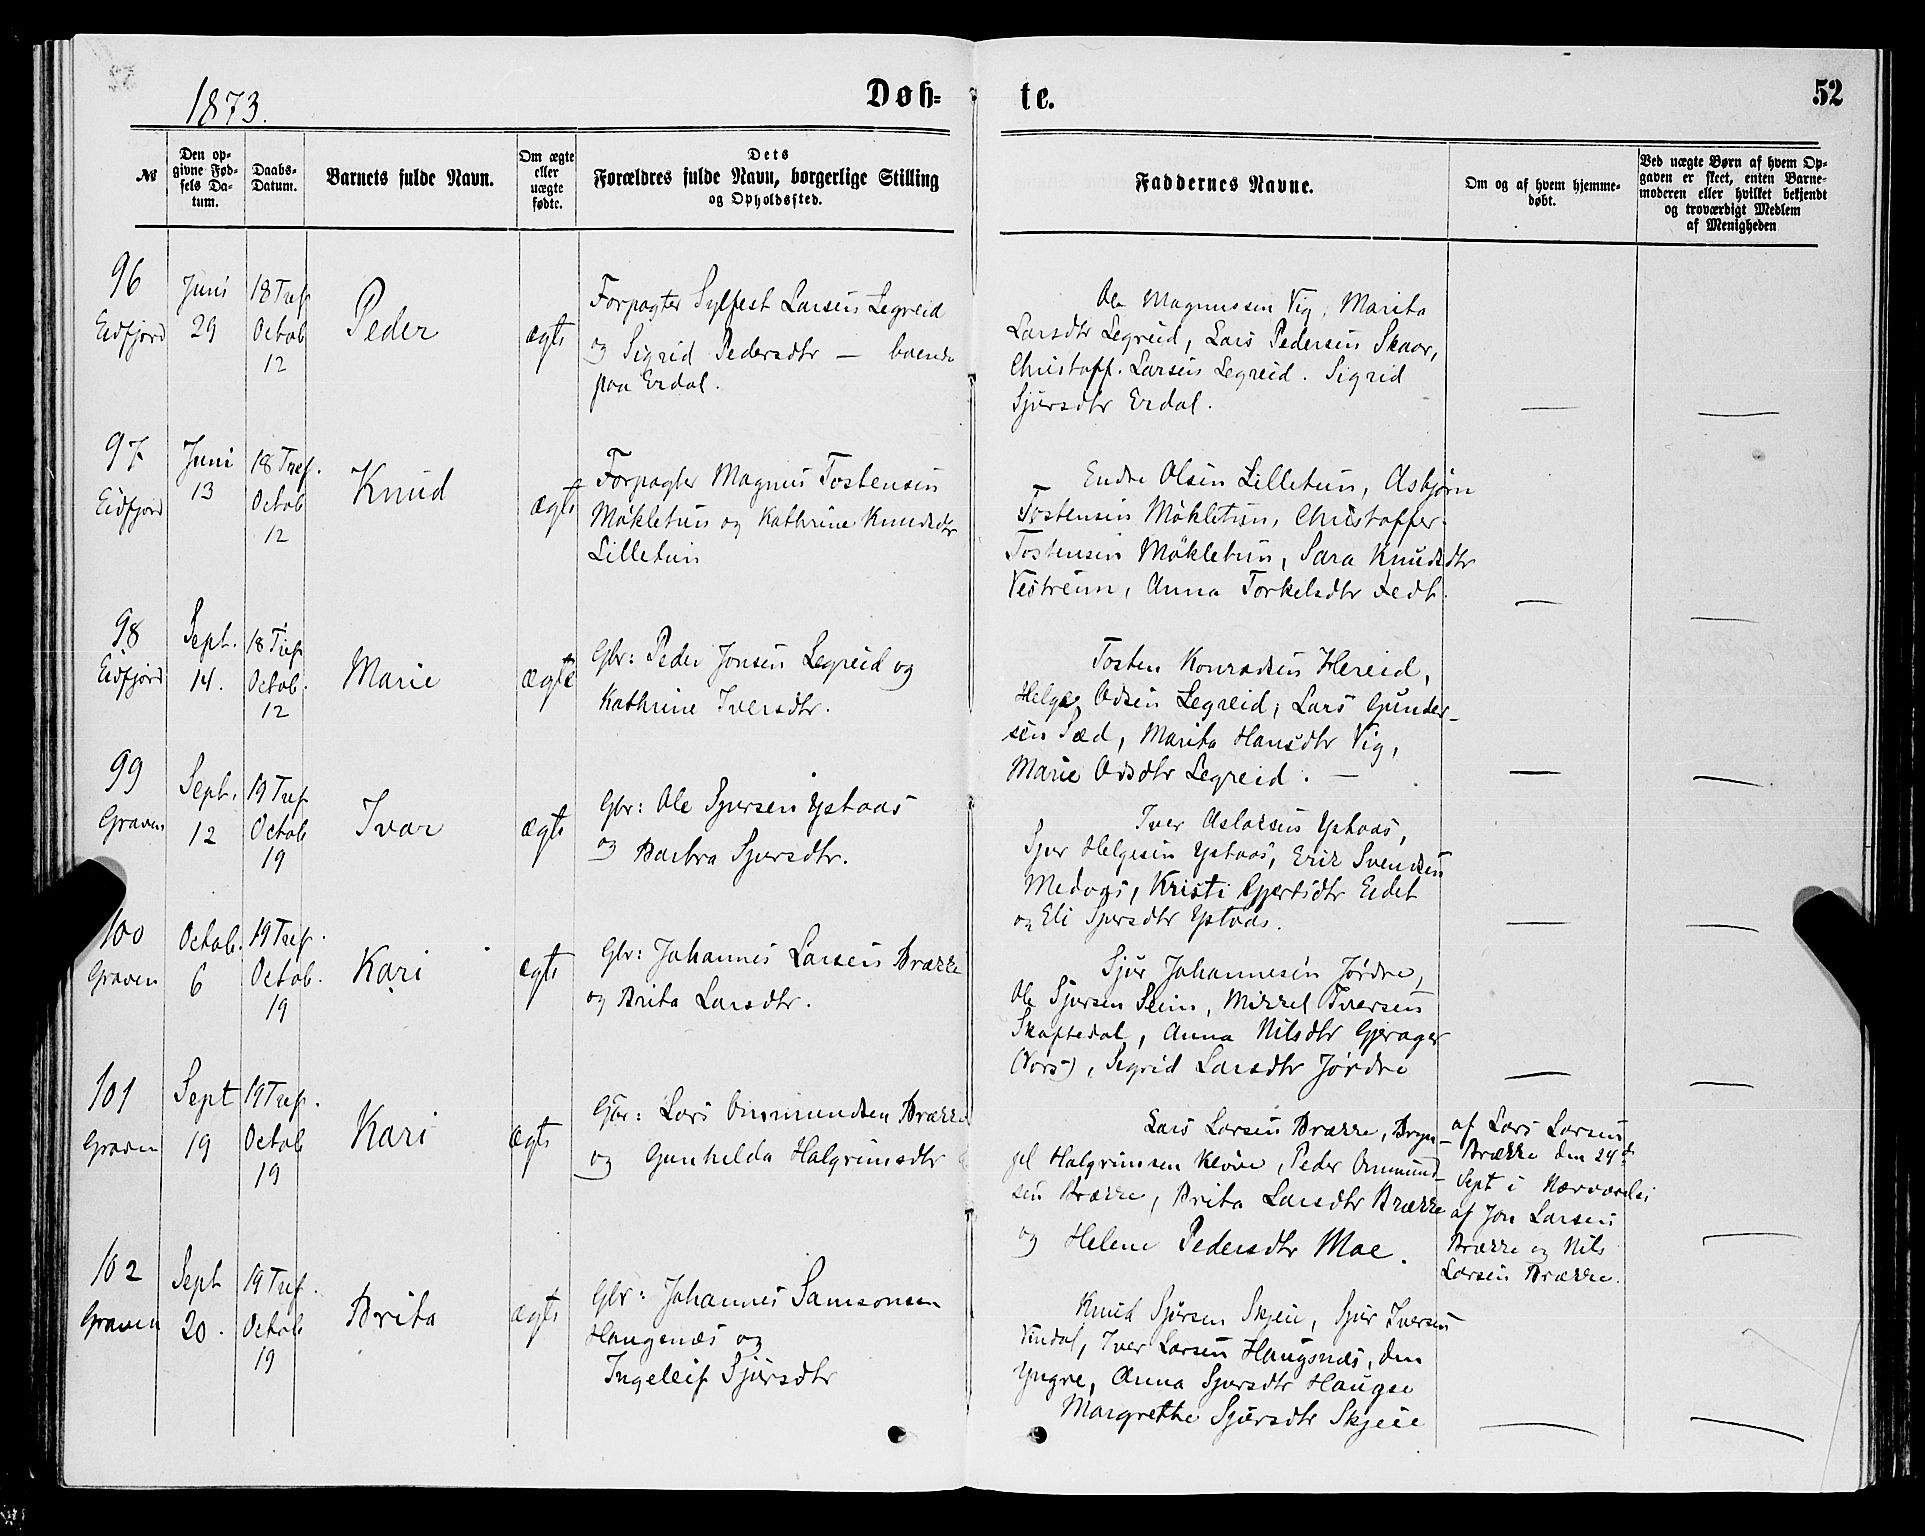 1873.
Døb-
te.
52
№
Den op-
givne Fød-
sels Da-
tum.
Daabs-
Datum.
Barnets fulde Navn.
Om ægte
eller
uægte
fødte.
Dets
Forældres fulde Navn, borgerlige Stilling
og Opholdssted.
Faddernes Navne.
Om og af hvem hjemme-
døbt.
Ved uægte Børn af hvem Op-
gaven er skeet, enten Barne-
moderen eller hvilket bekjendt
og troværdigt Medlem
af Menigheden
96
Eidfjord
Juni
29
18 Tref
Octob
12
Peder
ægte
Forpagter Sylfest Larsen Legreid
og Sigrid Pedersdtr — boende
paa Erdal.
Ole Magnussen Vig, Marita
Larsdtr Legreid, Lars Pedersen Skaar,
Christoff. Larsen Legreid. Sigrid
Sjursdtr Erdal.
—
—
97
Eidfjord
Juni
13
18 Tref.
Octob
12
Knud
ægte
Forpagter Magnus Tostensen
Møkletun og Kathrine Knudsdtr
Lilletun
Endre Olsen Lilletun, Asbjørn
Tostensen Møkletun, Christoffer
Tostensen Møkletun, Sara Knudsdtr
Vestreim, Anna Torkelsdtr
—
—
98
Eidfjord
Sept.
14.
18 Tref
Octob.
12
Marie
ægte
Gbr: Peder Jonsen Legreid og
Kathrine Iversdtr.
Tosten Konradsen Hereid,
Helge Odsen Legreid, Lars Gunder-
sen Sæd, Marita Hansdtr Vig,
Marie Odsdtr Legreid. —
—
—
99
Graven
Sept.
12
19 Tref
Octob
19
Ivar
ægte
Gbr: Ole Sjursen Ystaas
og Barbra Sjursdtr.
Iver Aslaksen Ystaas,
Sjur Helgesen Ystaas, Erik Svendsen
Medaas, Kristi Gjertsdtr Eidet
og Eli Sjursdtr Ystaas.
—
—
100
Graven
Octob.
6
19 Tref.
Octob.
19
Kari
ægte
Gbr: Johannes Larsen Brække
og Brita Larsdtr.
Sjur Johannesen Jørdre,
Ole Sjursen Seim, Mikkel Iversen
Skaftedal, Anna Nilsdtr Gjerager
(Vors), Sigrid Larsdtr Jørdre
—
—
101
Graven
Sept
19
19 Tref.
Octob
19
Kari
ægte
Gbr: Lars Ommundsen Brække
og Gunhilda Halgrimsdtr
Lars Larsen Brække, Bryn-
jel Halgrimsen Kløve, Peder Ommund-
sen Brække, Brita Larsdtr Brække
og Helene Pedersdtr Moe.
af Lars Larsen
Brække den 24de
Sept i Nærværelse
af Jon Larsen
Brække og Nils
Larsen Brække.
—
102
Graven
Sept
20.
19 Tref.
Octob
19
Brita
ægte
Gbr: Johannes Samsonsen
Haugsnæs og
Ingeleif Sjursdtr
Knud Sjursen Skjeie, Sjur Iversen
Vindal, Iver Larsen Haugsnæs, den
Yngre, Anna Sjursdtr Haugse
Margrethe Sjursdtr Skjeie
—
—